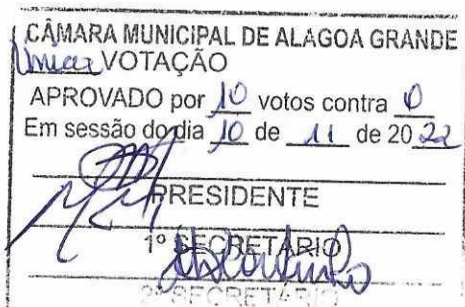 CÂMARA MUNICIPAL DE ALAGOA GRANDE
Única VOTAÇÃO
APROVADO por 10 votos contra 0
Em sessão do dia 10 de 11 de 2022
PRESIDENTE
1º SECRETÁRIO
2º SECRETÁRIO